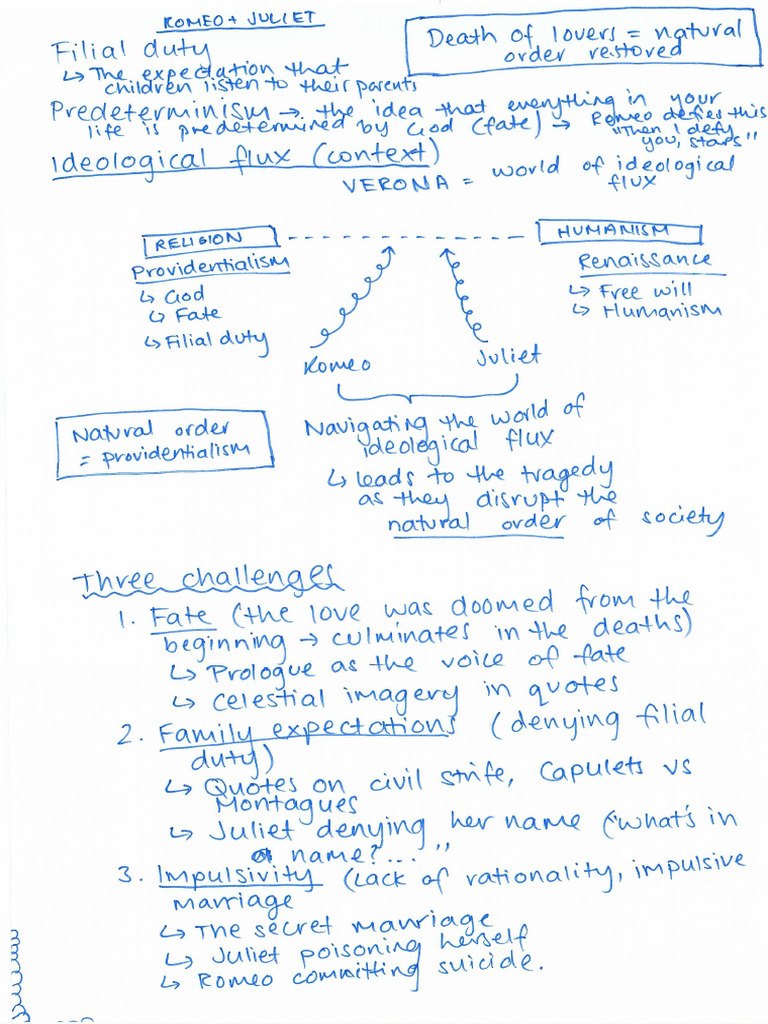 ROMEO + JULIET
Filial duty
↳ The expectation that
children listen to their parents
Death of lovers = natural
order restored
Predeterminism → the idea that everything in your
life is predetermined by God (fate) → Romeo defies this
"Then I defy
you, stars"
Ideological flux (context)
VERONA = world of ideological
flux
RELIGION
Providentialism
↳ God
↳ Fate
↳ Filial duty
HUMANISM
Renaissance
↳ Free will
↳ Humanism
Romeo
Juliet
Natural order
= providentialism
Navigating the world of
ideological flux
↳ leads to the tragedy
as they disrupt the
natural order of society
Three challenges
1. Fate (the love was doomed from the
beginning → culminates in the deaths)
↳ Prologue as the voice of fate
↳ celestial imagery in quotes
2. Family expectations (denying filial
duty)
↳ Quotes on civil strife, Capulets vs
Montagues
↳ Juliet denying her name ("what's in
a name?...."
3. Impulsivity (Lack of rationality, impulsive
marriage
↳ The secret marriage
↳ Juliet poisoning herself
↳ Romeo committing suicide.